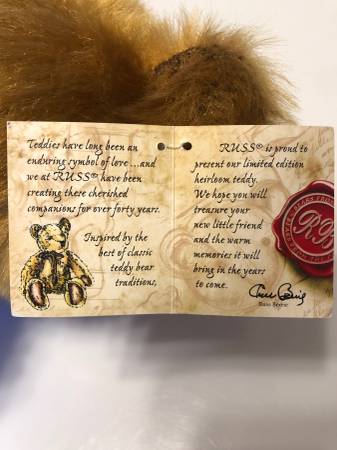 Teddies have long been an
enduring symbol of love ...and
we at RUSS® have been
creating these cherished
companions for over forty years.
Inspired by the
best of classic
teddy bear
traditions,
RUSS® is proud to
present our limited edition
heirloom teddy.
We hope you will
treasure your
new little friend
and the warm
memories it will
bring in the years
to come.
Russ Berrie
RB